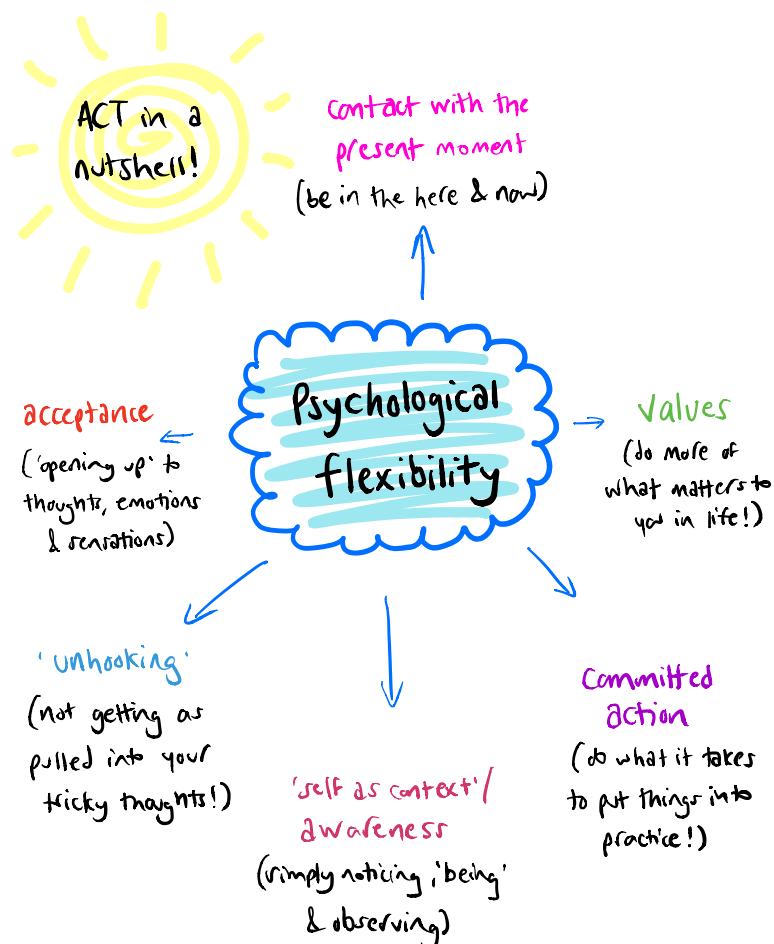 ACT in a
nutshell!
contact with the
present moment
(be in the here & now)
Psychological
flexibility
acceptance
('opening up' to
thoughts, emotions
& sensations)
values
(do more of
what matters to
you in life!)
'unhooking'
(not getting as
pulled into your
tricky thoughts!)
'self as context'/
awareness
(simply noticing, 'being'
& observing)
committed
action
(do what it takes
to put things into
practice!)